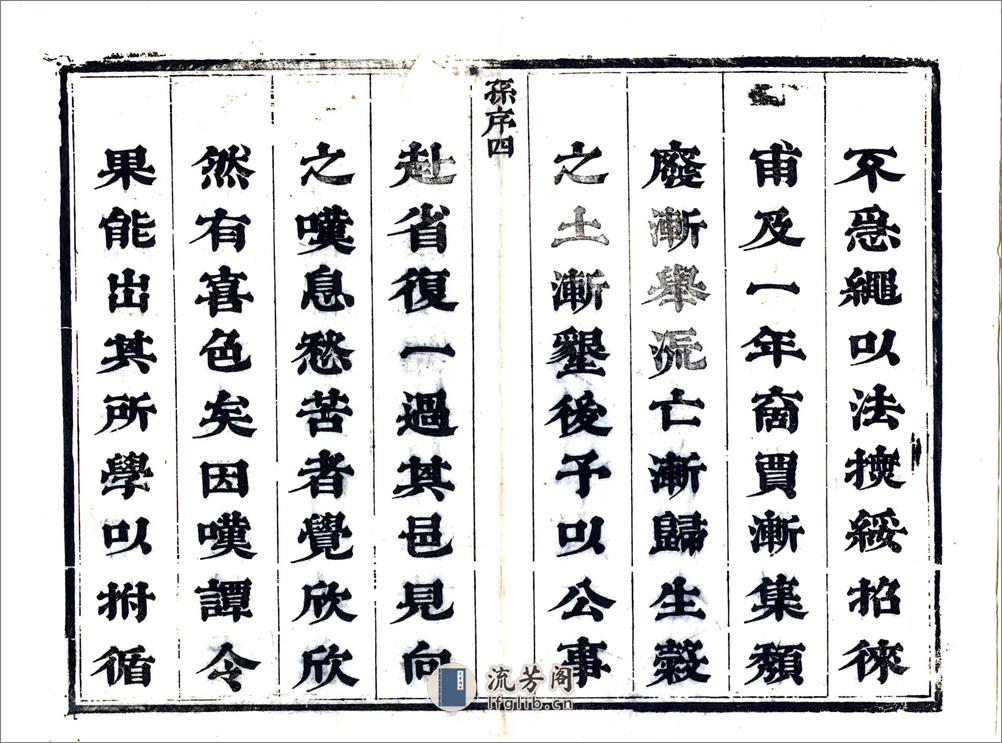 不急繩以法撫綏招徠
甫及一年商賈漸集頽
廢漸舉流亡漸歸生榖
之土漸墾後予以公事
孫序四
赴省復一過其邑見向
之嘆息愁苦者覺欣欣
然有喜色矣因嘆譚令
果能出其所學以拊循
流芳阁
lfglib.cn